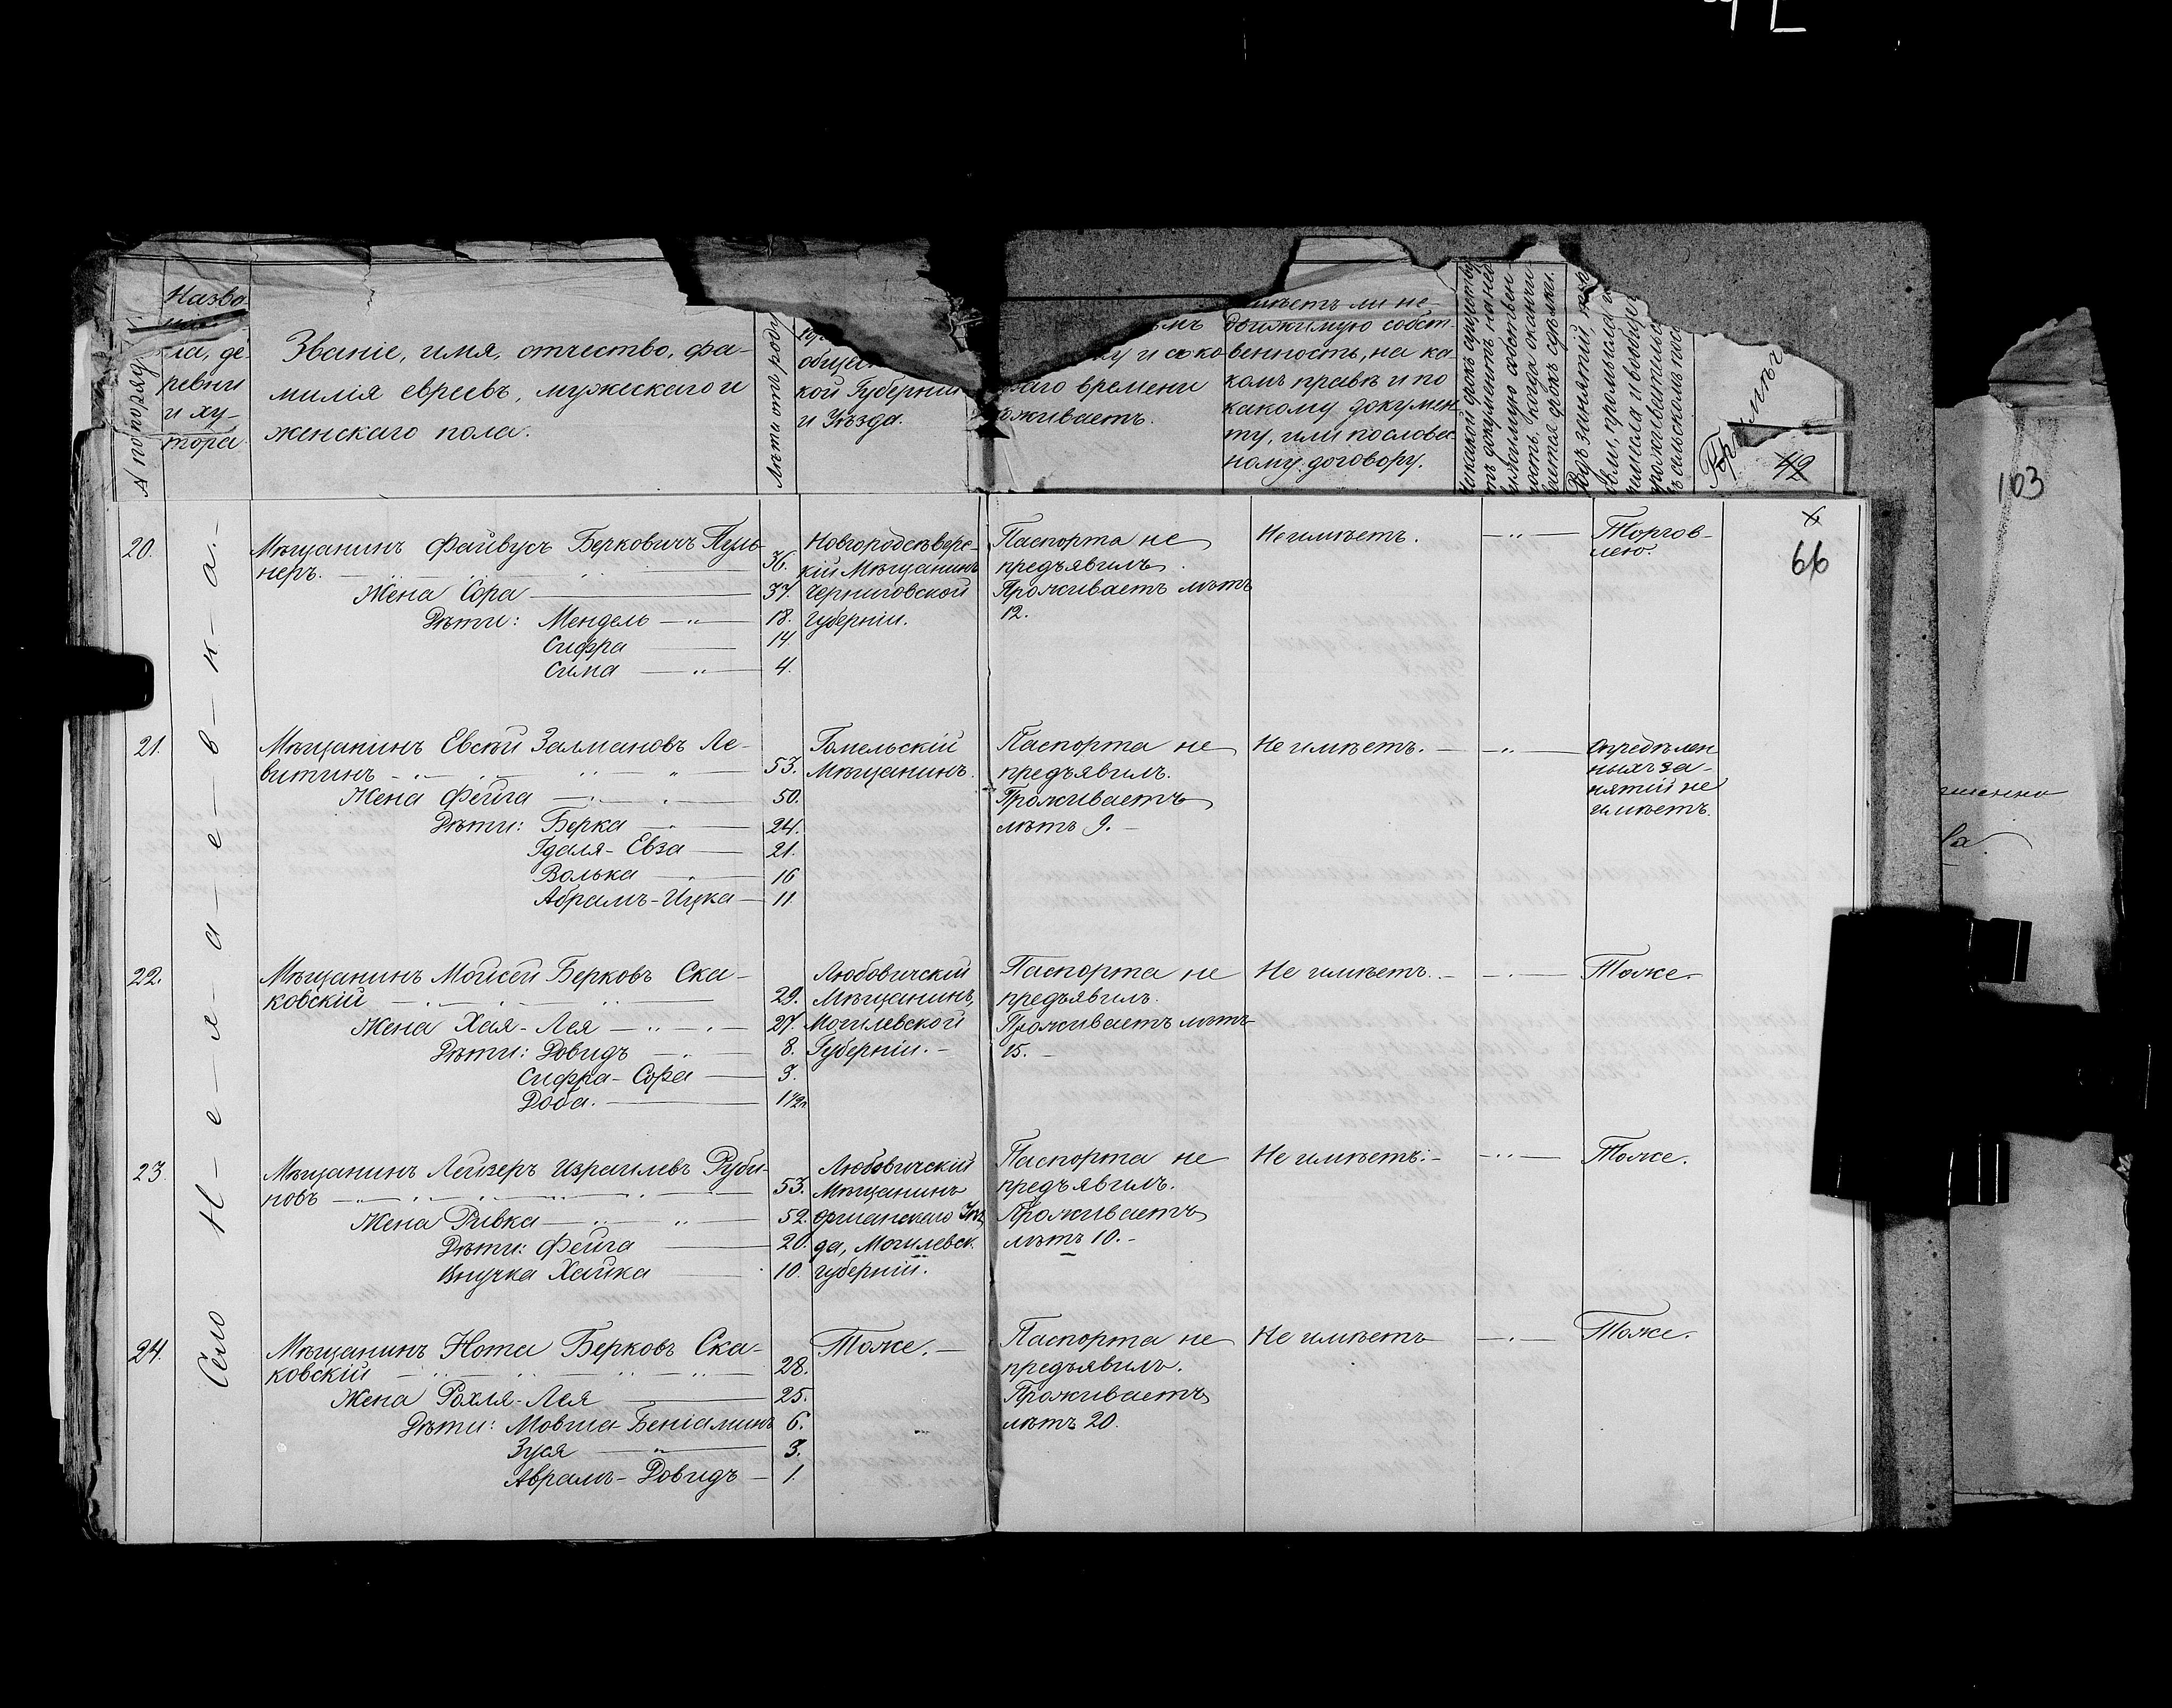 Назва-
ла, де
ревни
и ху-
тора
№ по порядку
Званіе, имя, отчество, фа-
милія евреевъ, мужескаго и
женскаго пола.
Лѣта отъ роду
кой Губерніи
и Уѣзда.
ку и сколо
времени
оживаетъ.
имѣетъ ли не-
движимую собст-
венность, на ка-
комъ правѣ и по
какому докумен
ту, или по словес
ному договору.
49
103
Село Н-е-я-а-е-в-к-а.
66
20.
Мѣщанинъ Файвусъ Берковичъ Пуль
неръ. 36.
Жена Сора 37.
Дѣти: Мендель 18.
Сифра 14.
Сима 4.
Новгородсѣверс-
кій Мѣщанинъ
Черниговской
Губерніи.
Паспорта не
предъявилъ.
Проживаетъ лѣтъ
12.
Не имѣетъ.
Торгов-
лею.
21.
Мѣщанинъ Евсѣй Залмановъ Ле-
витинъ 53.
Жена Фейга 50.
Дѣти: Берка 24.
Гдаля-Евза 21.
Волька 16
Абрамъ-Ицка 11
Гомельскій
Мѣщанинъ.
Паспорта не
предъявилъ.
Проживаетъ
лѣтъ 9.
Не имѣетъ.
Опредѣлен
ныхъ за-
нятій не
имѣетъ.
22.
Мѣщанинъ Мойсей Берковъ Ска-
ковскій 29.
Жена Хая-Лея 27.
Дѣти: Довидъ 8.
Сифра-Сора 3.
Доба. 1 1/2
Любовичскій
Мѣщанинъ,
Могилевской
Губерніи.
Паспорта не
предъявилъ.
Проживаетъ лѣтъ
15.
Не имѣетъ.
Тоже.
23
Мѣщанинъ Лейзеръ Израилевъ Руби-
новъ 53.
Жена Ривка 52.
Дѣти: Фейга 20.
Внучка Хайка 10.
Любовичскій
Мѣщанинъ
Оршанскаго Уѣз
да, Могилевск.
губерніи.
Паспорта не
предъявилъ.
Проживаетъ
лѣтъ 10.
Не имѣетъ.
Тоже.
24.
Мѣщанинъ Нота Берковъ Ска-
ковскій 28.
Жена Рохля-Лея 25.
Дѣти: Мовша-Беніаминъ 6.
Зуся 3.
Аврамъ-Довидъ 1.
Тоже.
Паспорта не
предъявилъ.
Проживаетъ
лѣтъ 20.
Не имѣетъ
Тоже.